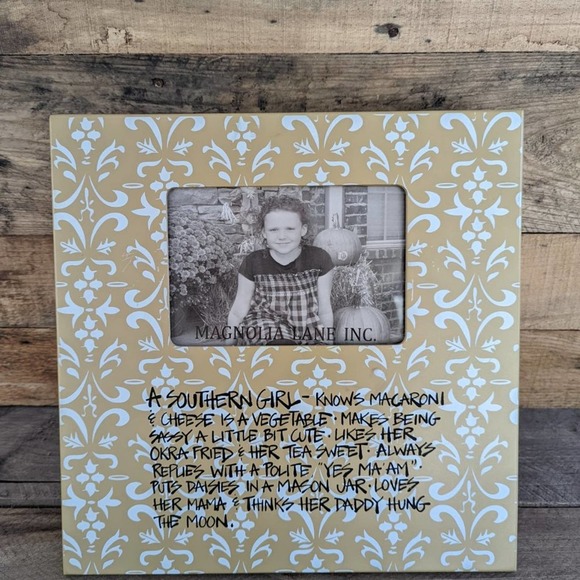 MAGNOLIA LANE INC.
A SOUTHERN GIRL - KNOWS MACARONI
& CHEESE IS A VEGETABLE · MAKES BEING
SASSY A LITTLE BIT CUTE · LIKES HER
OKRA FRIED & HER TEA SWEET · ALWAYS
REPLIES WITH A POLITE, "YES MA'AM" ·
PUTS DAISIES IN A MASON JAR · LOVES
HER MAMA & THINKS HER DADDY HUNG
THE MOON.